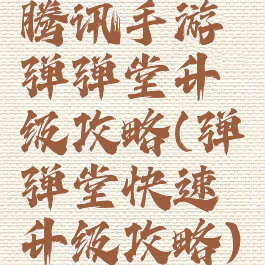 腾讯手游
弹弹堂升
级攻略(弹
弹堂快速
升级攻略)